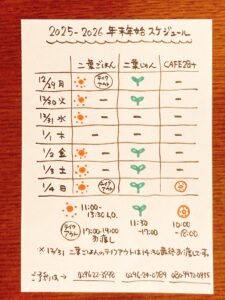 2025-2026 年末年始スケジュール
二葉ごはん 二葉じかん CAFE284
12/29 月 テイクアウト —
12/30 火 — —
12/31 水 — — —
1/1 木 — — —
1/2 金 —
1/3 土 —
1/4 日 テイクアウト
11:00-
13:30 L.O.
テイクアウト 17:00-19:00
お渡し
11:30
-17:00
10:00
-18:00
※12/31 二葉ごはんのテイクアウトは14:30最終お渡しです。
ご予約は →